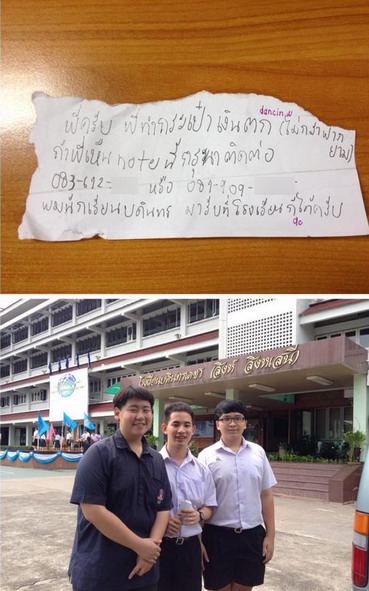 พี่ครับ พี่ทำกระเป๋าเงินตก (ไม่กล้าฝากยาม)
ถ้าพี่เห็น note นี้ กรุณาติดต่อ
083-612- หรือ 081-909-
ผมนักเรียนบดินทร มารับที่โรงเรียนก็ได้ครับ
โรงเรียนบดินทรเดชา (สิงห์ สิงหเสนี)